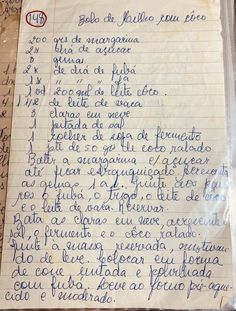 148 Bolo de Milho com côco
200 grs de margarina
2 x chá de açúcar
3 gemas
2 x de chá de fubá
1 x " " " "
1 vd 200 grs de leite côco.
1/2 de leite de vaca
3 claras em neve
1 pitada de sal
1 colher de sopa de fermento
1 pte de 50 grs de coco ralado
Bater a margarina c/ açúcar
até ficar esbranquiçado. Acrescente
as gemas 1 a 1. Junte aos poucos
o fubá, o trigo, o leite de coco
e o leite de vaca. Reservar.
Bata as claras em neve, acrescente
sal, o fermento e o côco ralado.
Junte a massa reservada, misturando
de leve. Colocar em forma
de cone untada e polvilhada
com fubá. Leve ao forno pré-aque-
cido e moderado.